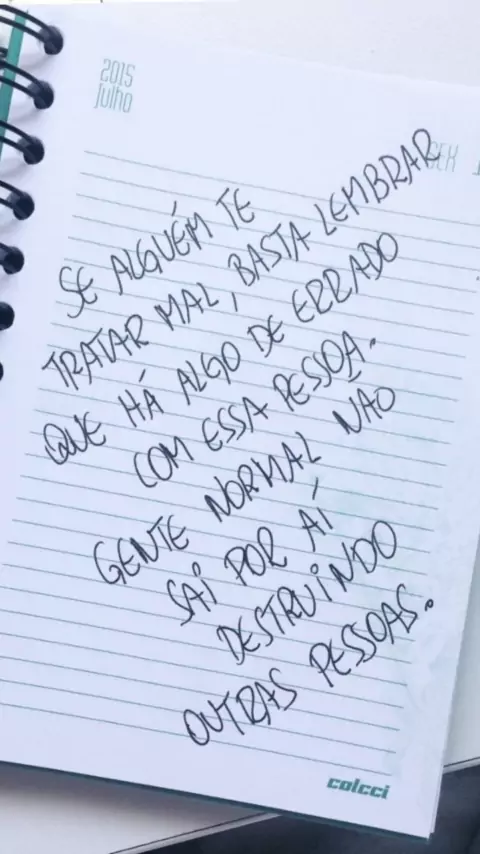 2015
Julho
SEX
SE ALGUÉM TE
TRATAR MAL, BASTA LEMBRAR
QUE HÁ ALGO DE ERRADO
COM ESSA PESSOA.
GENTE NORMAL NÃO
SAI POR AÍ
DESTRUINDO
OUTRAS PESSOAS.
colcci